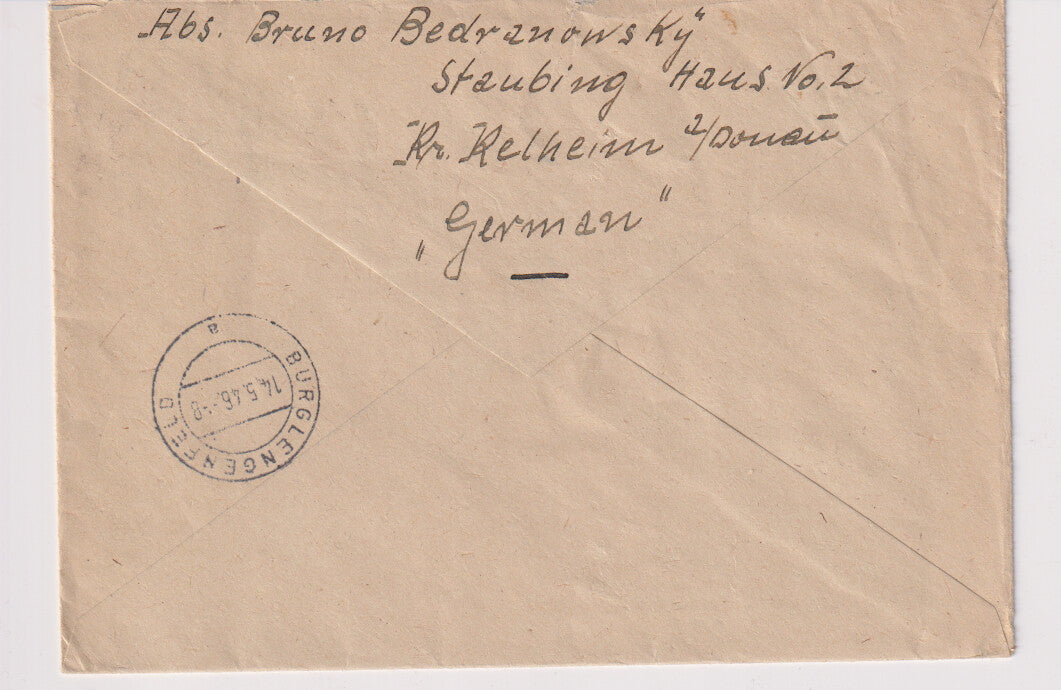 Abs. Bruno Bedranowsky"
Staubing Haus No. 2
Kr. Kelheim a/Donau
„German"
BURGLENGENFELD
a
14.5.46.-8